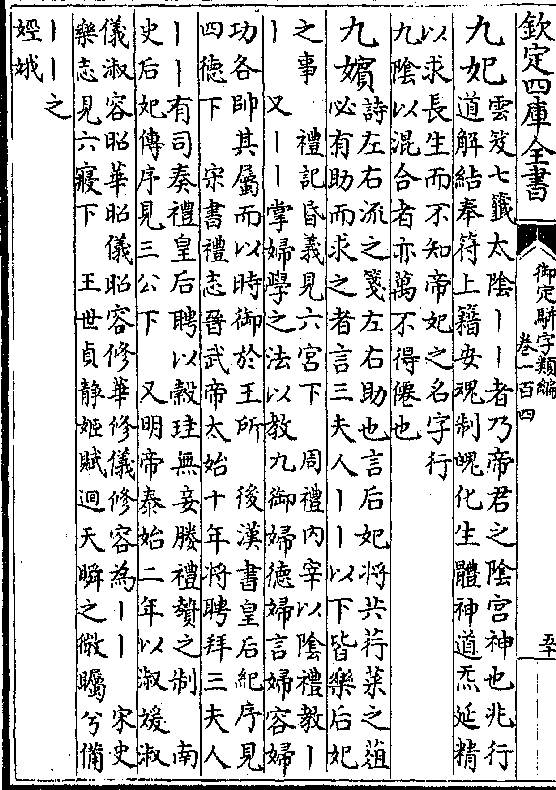 欽定四庫全書
御定駢字類編
卷一百四
五十
九妃
雲笈七籤太陰丨丨者乃帝君之陰宮神也兆行
道解結奉符上籍安魂制魄化生體神道炁延精
以求長生而不知帝妃之名字行
九陰以混合者亦萬不得僊也
九嬪
詩左右流之箋左右助也言后妃將共荇菜之葅
必有助而求之者言三夫人丨丨以下皆樂后妃
之事 禮記昏義見六宮下 周禮內宰以陰禮教丨
丨 又丨丨掌婦學之法以教九御婦德婦言婦容婦
功各帥其屬而以時御於王所 後漢書皇后紀序見
四德下 宋書禮志晉武帝太始十年將聘拜三夫人
丨丨有司奏禮皇后聘以穀珪無妾媵禮贄之制 南
史后妃傳序見三公下 又明帝泰始二年以淑媛淑
儀淑容昭華昭儀昭容修華修儀修容為丨丨 宋史
樂志見六寢下 王世貞靜姬賦迴天瞬之微矚兮備
丨丨之
娙娥